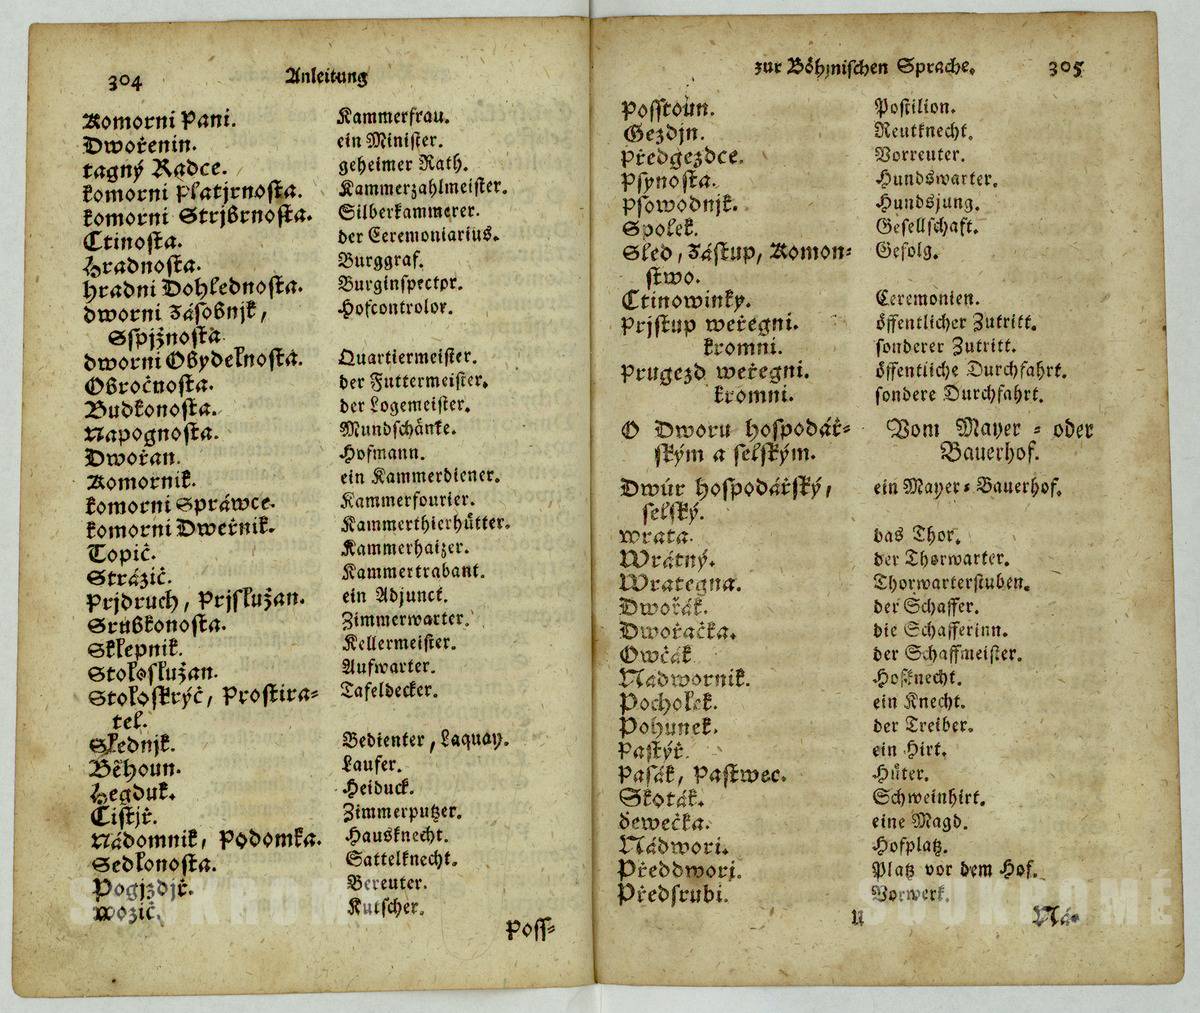 304 Anleitung
Komorni Pani. Kammerfrau.
Dwořenin. ein Minister.
tagný Radce. geheimer Rath.
komorni Płatjrnoſta. Kammerzahlmeiſter.
komorni Strjbrnoſta. Silberkammerer.
Ctinoſta. der Ceremoniarius.
Hradnoſta. Burggraf.
hradni Dohlednoſta. Burginſpector.
dworni Záſobnjk, Hofcontrolor.
Sſpjžnoſta
dworni Obydełnoſta. Quartiermeiſter.
Obročnoſta. der Futtermeiſter.
Budkonoſta. der Logemeiſter.
Napognoſta. Mundſchänke.
Dwořan. Hofmann.
Komornik. ein Kammerdiener.
komorni Spráwce. Kammerfourier.
komorni Dweřnik. Kammerthierhütter.
Topič. Kammerhaizer.
Strážič. Kammertrabant.
Prjdruch, Prjſłužan. ein Adjunct.
Srubkonoſta. Zimmerwarter.
Skłepnik. Kellermeiſter.
Stołoſłužan. Aufwarter.
Stołoſkryč, Proſtira- Tafeldecker.
tel.
Słednjk. Bedienter, Laquay.
Běhoun. Laufer.
Hegduk. Heiduck.
Ciſtjř. Zimmerputzer.
Nádomnik, Podomka. Hausknecht.
Sedłonoſta. Sattelknecht.
Pogjzdjř. Bereuter.
Wozič. Kutſcher.
Poſſ-
zur Böhmiſchen Sprache. 305
Poſſtoun. Poſtilion.
Gezdjn. Reutknecht.
Předgezdce. Vorreuter.
Pſynoſta. Hundswarter.
Pſowodnjk. Hundsjung.
Spolek. Geſellſchaft.
Sled, Záſtup, Komon- Gefolg.
ſtwo.
Ctinowinky. Ceremonien.
Prjſtup weřegni. öffentlicher Zutritt.
kromni. ſonderer Zutritt.
Prugezd weřegni. öffentliche Durchfahrt.
kromni. ſondere Durchfahrt.
O Dworu hoſpodář- Vom Mayer - oder
ſkým a ſelſkým. Bauerhof.
Dwůr hoſpodářſký, ein Mayer-Bauerhof.
ſelſký.
wrata. das Thor.
Wrátný. der Thorwarter.
Wrategna. Thorwarterſtuben.
Dwořák. der Schaffer.
Dwořačka. die Schafferinn.
Owčák der Schaffmeiſter.
Nádwornik. Hofknecht.
Pochołek. ein Knecht.
Pohunek. der Treiber.
Paſtýř. ein Hirt.
Paſák, Paſtwec. Hüter.
Skoták. Schweinhirt.
děwečka. eine Magd.
Nádwori. Hofplatz.
Předdworj. Platz vor dem Hof.
Předſrubi. Vorwerk.
U Ná-